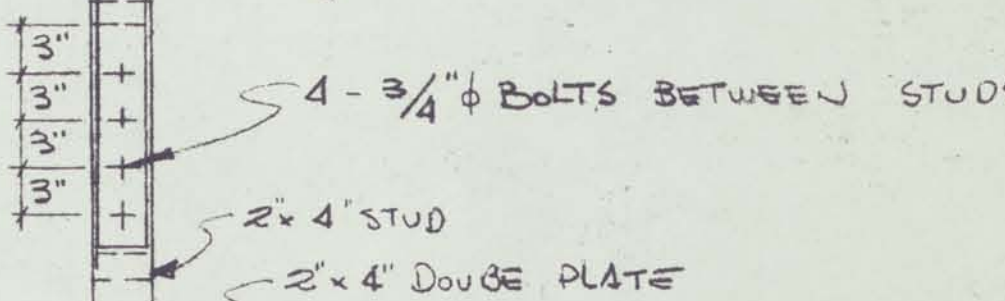 3"
3"
3"
3"
4 - 3/4" ϕ BOLTS BETWEEN STUDS
2" x 4" STUD
2" x 4" DOUBE PLATE